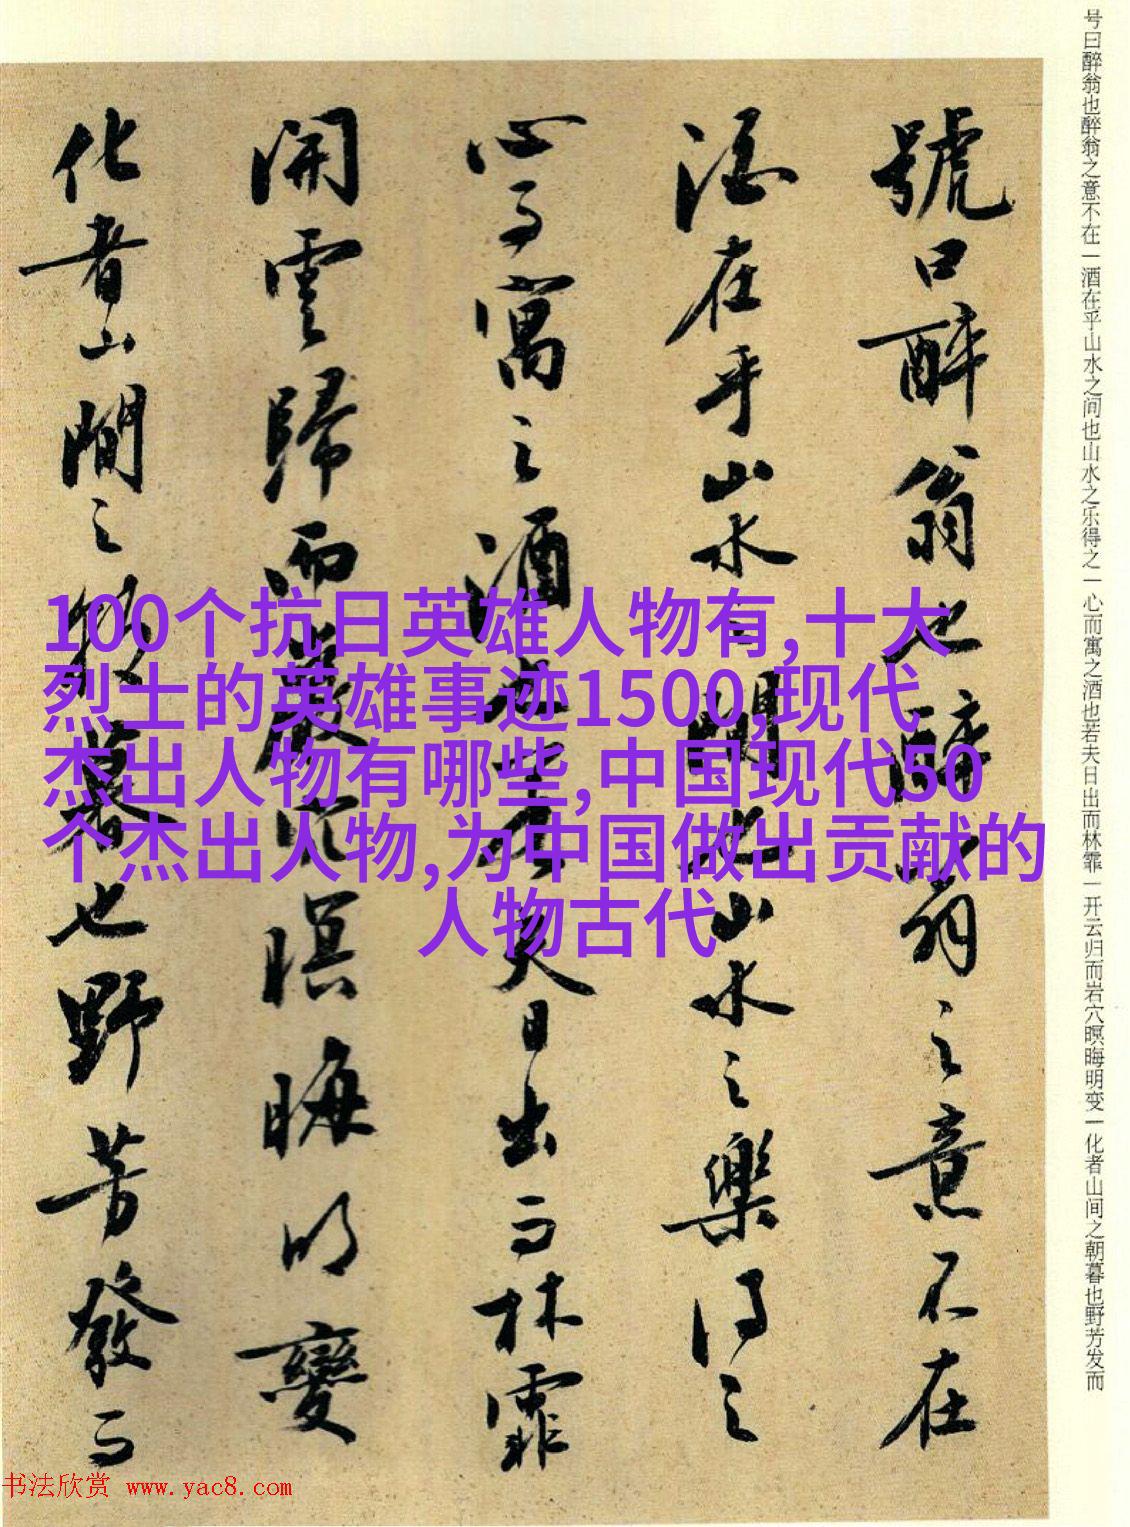 号曰醉翁也醉翁之意不在一酒在乎山水之间也山水之乐得之一心而寓之酒也若夫日出而林霏一开云归而岩穴暝晦明变一化者山间之朝暮也野芳发而
號曰醉翁也醉翁之意不在
酒在乎山水之間也山水之樂得之
心而寓之酒也若夫日出而林霏
開雲歸而巖穴暝晦明變
化者山間之朝暮也野芳發而
100个抗日英雄人物有,十大
烈士的英雄事迹1500,现代
杰出人物有哪些,中国现代50
个杰出人物,为中国做出贡献的
人物古代
书法欣赏 www.yac8.com